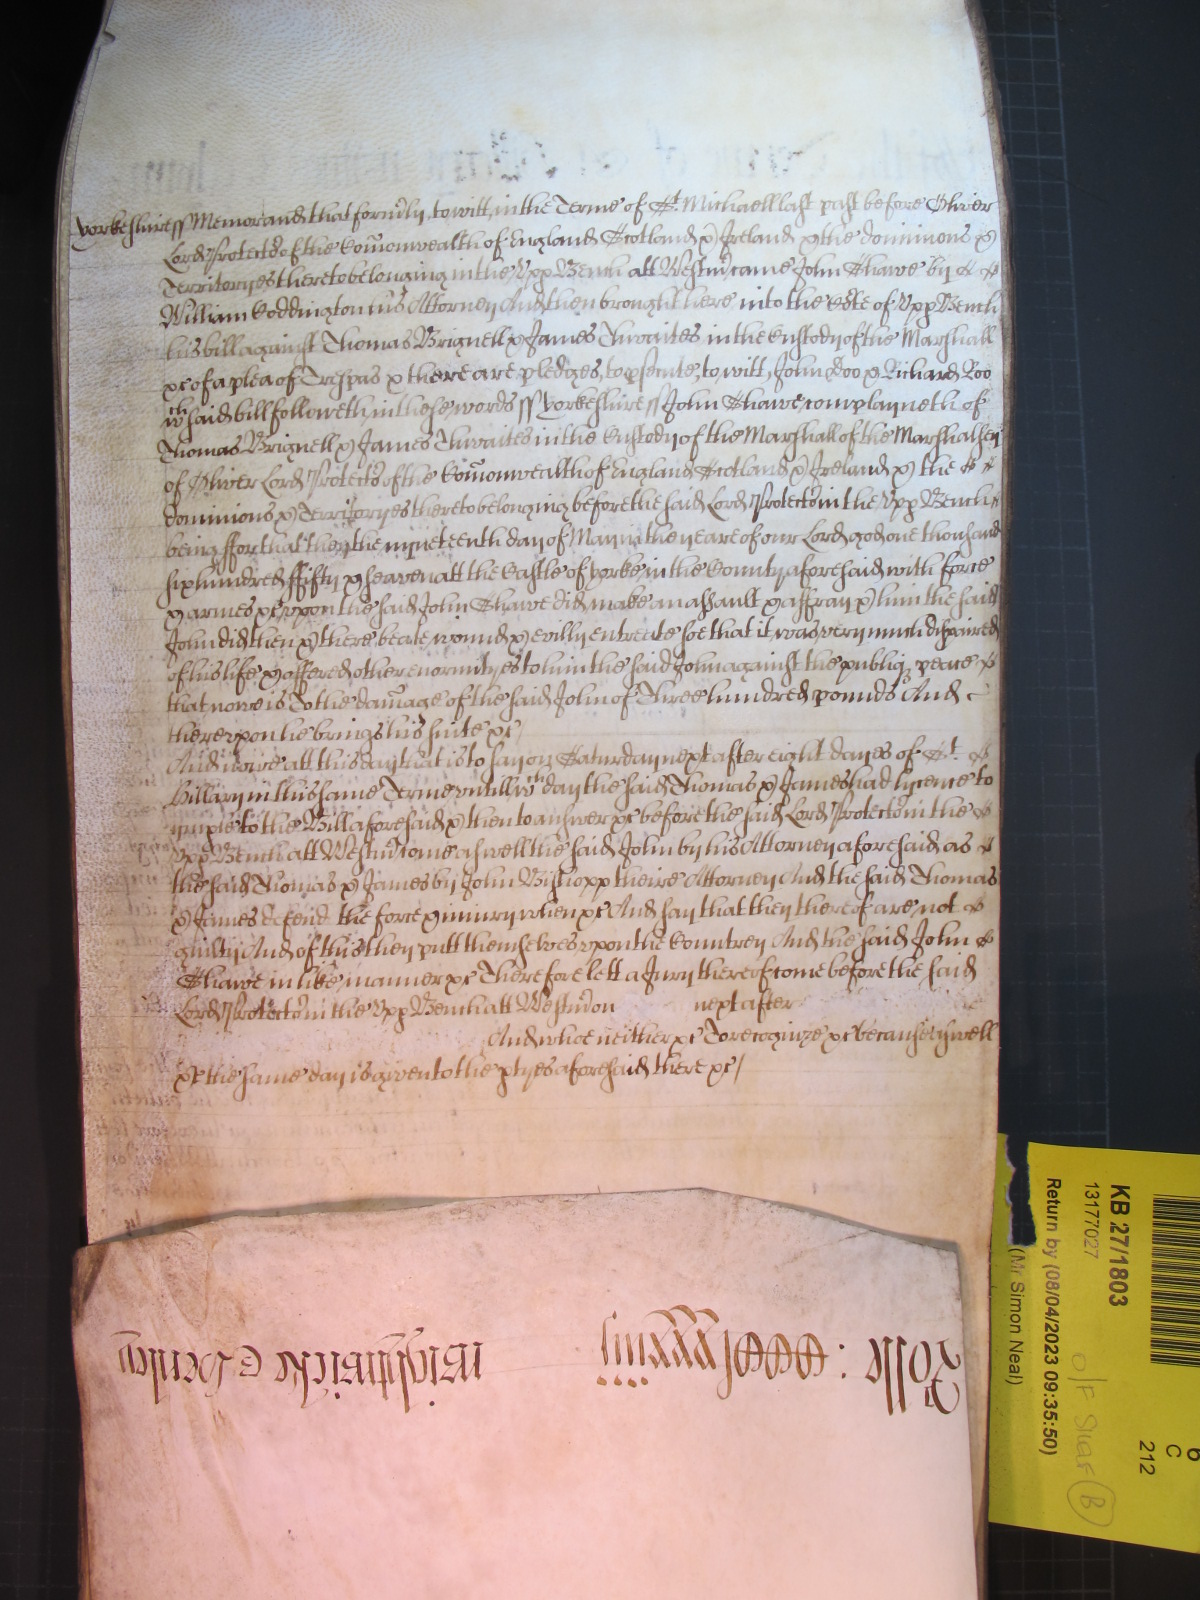 Yorkeshire ss Memorand that form̃ly, to witt, in the Terme of St. Michaell last past before Oliver
Lord Protector of the Com̃onwealth of England Scotland & Ireland & the dominions &
Territoryes thereto belonging in the Vpp Bench att Westm̃ came John Shawe by
William Coddington his Attorney And then brought here into the Co͠te of Vpp Bench
his bill against Thomas Brignell & James Thwaites in the Custody of the Marshall
&c of a plea of Trespas & there are pledges, to p̱secute, to witt, John Doo & Richard Roo
wch said bill followeth, in these words ss Yorkeshire ss John Shawe complayneth of
Thomas Brignell & James Thwaites in the Custody of the Marshall of the Marshalsey
of Oliver Lord Protector of the Com̃onwealth of England Scotland & Ireland & the
dominions & Territoryes thereto belonging before the said Lord Protector in the Vpp Bench
being ffor that they the nyneteenth day of May in the yeare of our Lord god one thousand
six hundred ffifty & seaven att the Castle of Yorke, in the County aforesaid with force
& armes &c vpon the said John Shawe did make an assault & affray & him the said
John did then & there beate, wound & evilly entreate soe that it was very much dispaired
of his life & offered other enormityes to him the said John against the publiq̃ peace
that nowe is To the dam̃age of the said John of Three hundred pounds And
therevpon he brings his suite &c
And nowe att this day that is to say on Saturday next after eight dayes of St.
Hillary in this same Terme vntill wch day the said Thomas & James had lycence to
imple to the Bill aforesaid & then to answer &c before the said Lord Protector in the
Vpp Bench att Westm̃ come aswell the said John by his Attorney aforesaid as
the said Thomas & James by John Bishopp theire Attorney And the said Thomas
& James defend the force & iniury when &c And say that they thereof are not
guilty And of this they putt themselves vpon the Countrey And the said John
Shawe in like, manner &c Therefore lett a Jury thereof come before the said
Lord Protector in the Vpp Bench att Westm̃ on next after
And who neither &c To recognize &c because aswell
&c the same day is given to the p̱tyes aforesaid there &c/
Rolle :
KB 27/1803
13177027
Return by (08/04/2023 09:35:50)
(Mr Simon Neal)
6
C
212
B